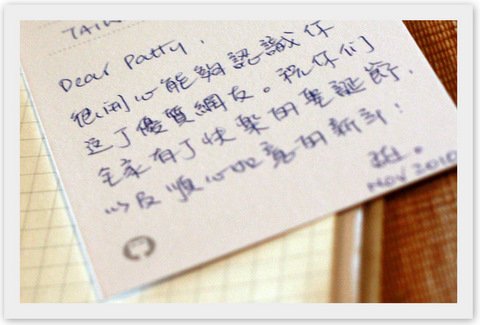 TAIW
Dear Patty,
很開心能夠認識你
這个優質網友。祝你們
全家有个快樂的聖誕節,
以及順心如意的新年!
Nov 2010